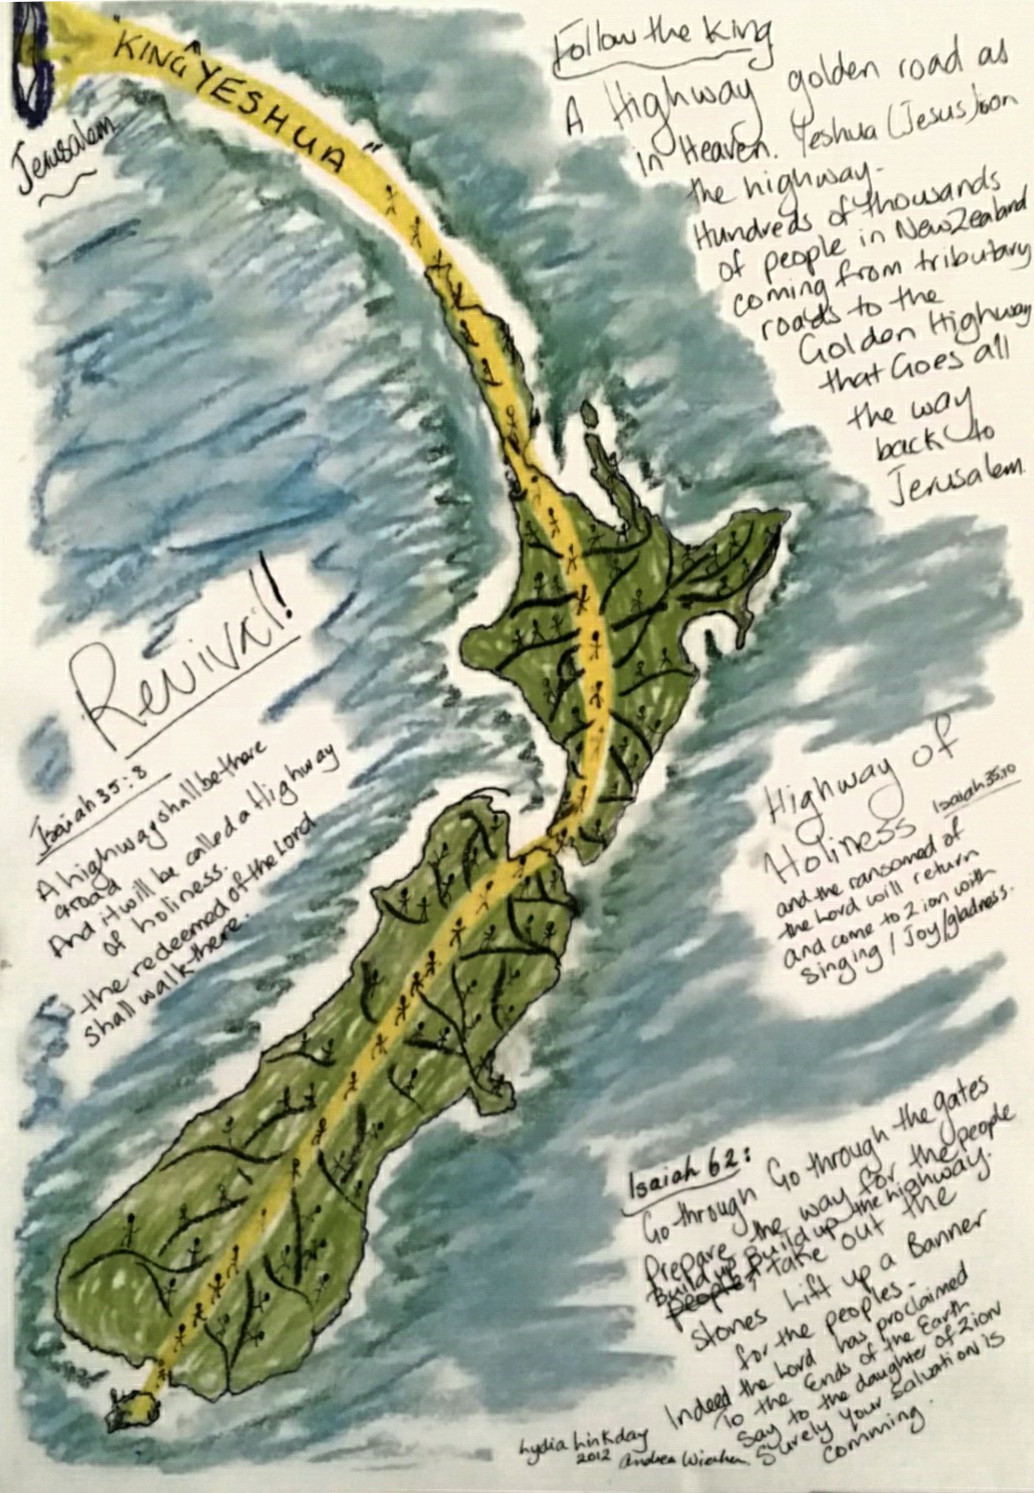 "KING YESHUA"
Jerusalem
Follow the King
A Highway golden road as
in Heaven. Yeshua (Jesus) on
the highway.
Hundreds of thousands
of people in New Zealand
coming from tributary
roads to the
Golden Highway
that Goes all
the way
back to
Jerusalem.
Revival!
Isaiah 35:8
A highway shall be there
a road
And it will be called a Highway
of holiness.
the redeemed of the Lord
shall walk there.
Highway of
Holiness Isaiah 35:10
and the ransomed of
the Lord will return
and come to Zion with
singing / Joy/gladness.
Isaiah 62:
Go through Go through the gates
Prepare the way for the people
Build up Build up the highway.
people, take out the
stones Lift up a Banner
for the peoples-
Indeed the Lord has proclaimed
To the Ends of the Earth
say to the daughter of Zion
Surely your salvation is
comming.
Lydia Linkday
2012 Andrea